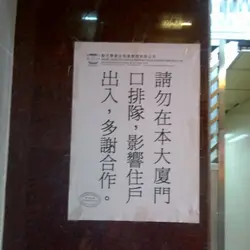 請勿在本大廈門
口排隊，影響住戶
出入，多謝合作。